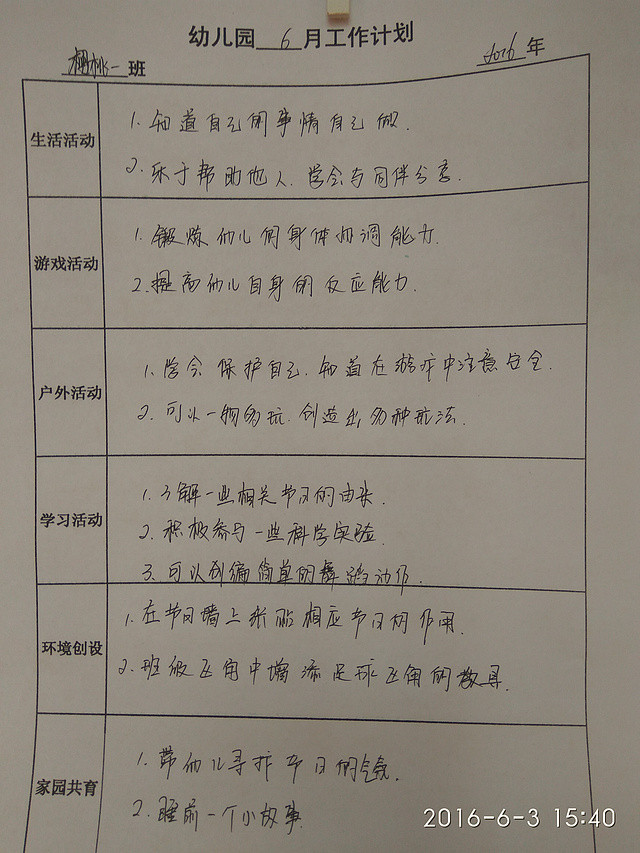 幼儿园 6 月工作计划
樱桃一 班 2016 年
生活活动
1. 知道自己的事情自己做.
2. 乐于帮助他人. 学会与同伴分享.
游戏活动
1. 锻炼幼儿的身体协调能力.
2. 提高幼儿自身的反应能力.
户外活动
1. 学会保护自己. 知道在游戏中注意安全.
2. 可以一物多玩. 创造出多种玩法.
学习活动
1. 了解一些相关节日的由来.
2. 积极参与一些科学实验.
3. 可以创编简单的舞蹈动作.
环境创设
1. 在节日墙上张贴相应节日的作用.
2. 班级区角中增添足球区角的教具.
家园共育
1. 带幼儿寻找节日的气氛.
2. 睡前一个小故事.
2016-6-3 15:40